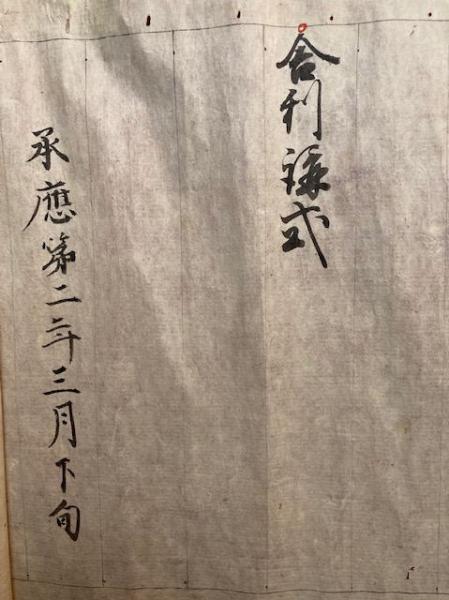 舎利講式
承應第二年三月下旬